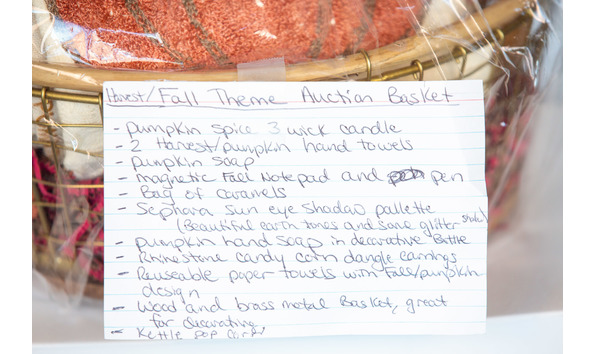 Harvest/Fall Theme Auction Basket
- Pumpkin spice 3 wick candle
- 2 Harvest/pumpkin hand towels
- pumpkin soap
- magnetic Fall Notepad and pen
- Bag of caramels
- Sephora sun eye Shadow pallette
(Beautiful earth tones and some glitter shades)
- pumpkin hand soap in decorative Bottle
- Rhinestone candy corn dangle earrings
- Reuseable paper towels with Fall/pumpkin
design
- Wood and brass metal Basket, great
for decorating
- Kettle pop corn